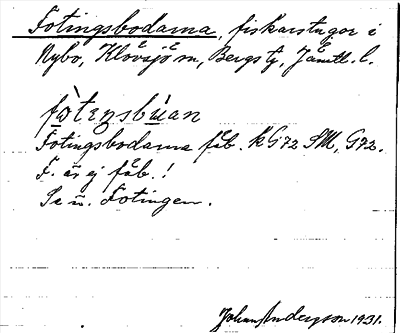 Fotingsbodarna, fiskarstugor i
Nybo, Klövsjö sn, Bergs tg, Jämtl. l.
fɷ̀teŋsbùan
Fotingsbodarna fäb. kG72 SM, G72.
F. är ej fäb.!
Se u. Fotingen.
Johan Anderson 1931.